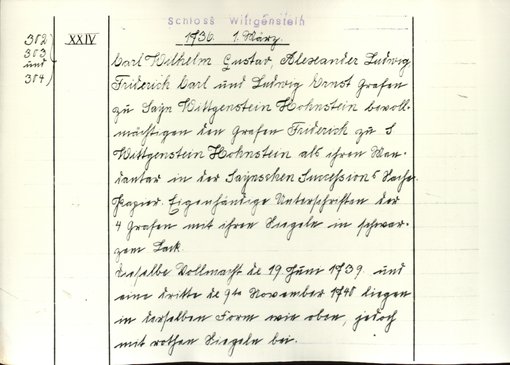 Schloss Wittgenstein
302 303 und 304
XXIV
1736 1. März.
Carl Wilhelm Gustav, Alexander Ludwig
Friderich Carl und Ludwig Ernst Grafen
zu Sayn Wittgenstein Hohnstein bevoll-
mächtigen den Grafen Friderich zu S
Wittgenstein Hohnstein als ihren Man-
dantar in der Saynschen Successions Sache.
Papier. Eigenhändige Unterschriften der
4 Grafen mit ihren Siegeln in schwar-
zem Lack.
Dieselbe Vollmacht de 19 Juni 1739 und
eine dritte de 9ten November 1748 liegen
in derselben Form wie oben, jedoch
mit rothen Siegeln bei.